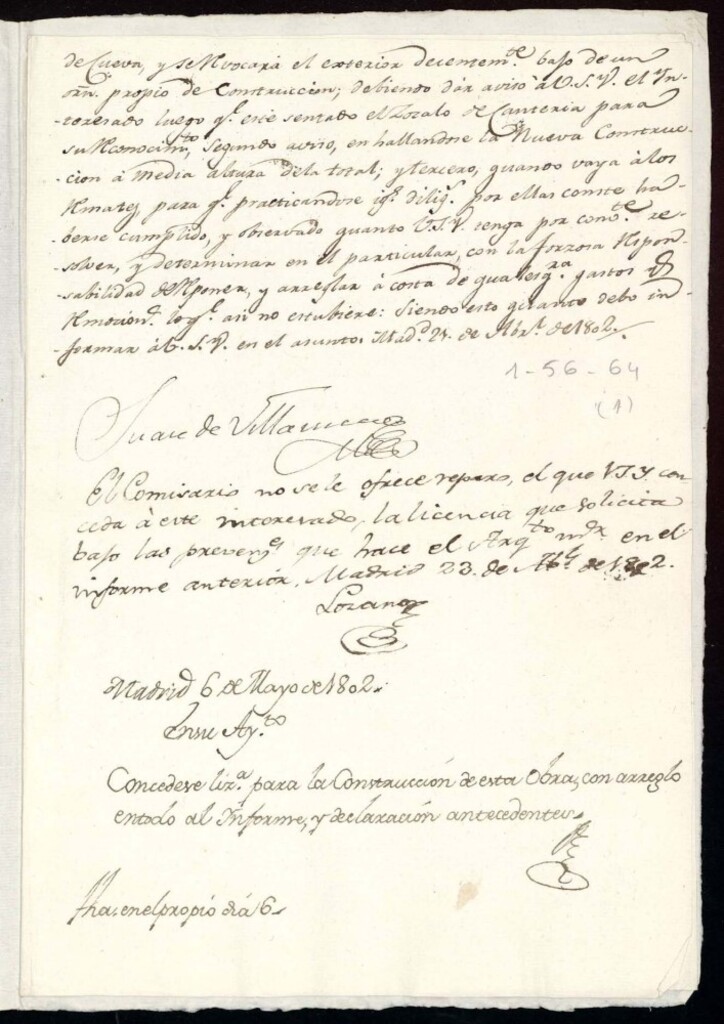 de Cueva, y se Rvocará el exterior decentem.te bajo de un
orn. propio de Construccion; debiendo dár aviso á V. S. Y. el Yn-
-toresado luego q.e este sentado el Zocalo de Canteria para
su Rconocim.to, Segundo aviso, en hallandose la Nueva Construc-
cion á media altura dela total; y tercero, quando vaya á los
Rmates para q.e practicandose ig.s dilig.s por ellas conste ha-
berse cumplido, y observado quanto V.S.Y. tenga por conv.te re-
solver, y determinar en el particular, con la forzosa Rspon-
sabilidad de Rponer, y arreglar á costa de qualesq.ra gastos de
Rmocion.s lo q.e asi no estubiere: Siendo esto quanto debo in-
-formar á V. S. Y. en el asunto. Mad.d 21. de Abr.l de 1802.
1-56-64
(1)
Juan de Villanueva
El Comisario no sele ofrece reparo, el que V.S.Y. con-
ceda á este interesado, la licencia que solicita
bajo las preven.s que hace el Arq.to m.or en el
informe anterior. Madrid 23. de Ab.l de 1802.
Lozano
Madrid 6 de Mayo de 1802.
En su Ay.to
Concedese liz.a para la Construcción de esta Obra, con arreglo
entodo al Informe, y declaración antecedentes.
fha. en el propio día 6.